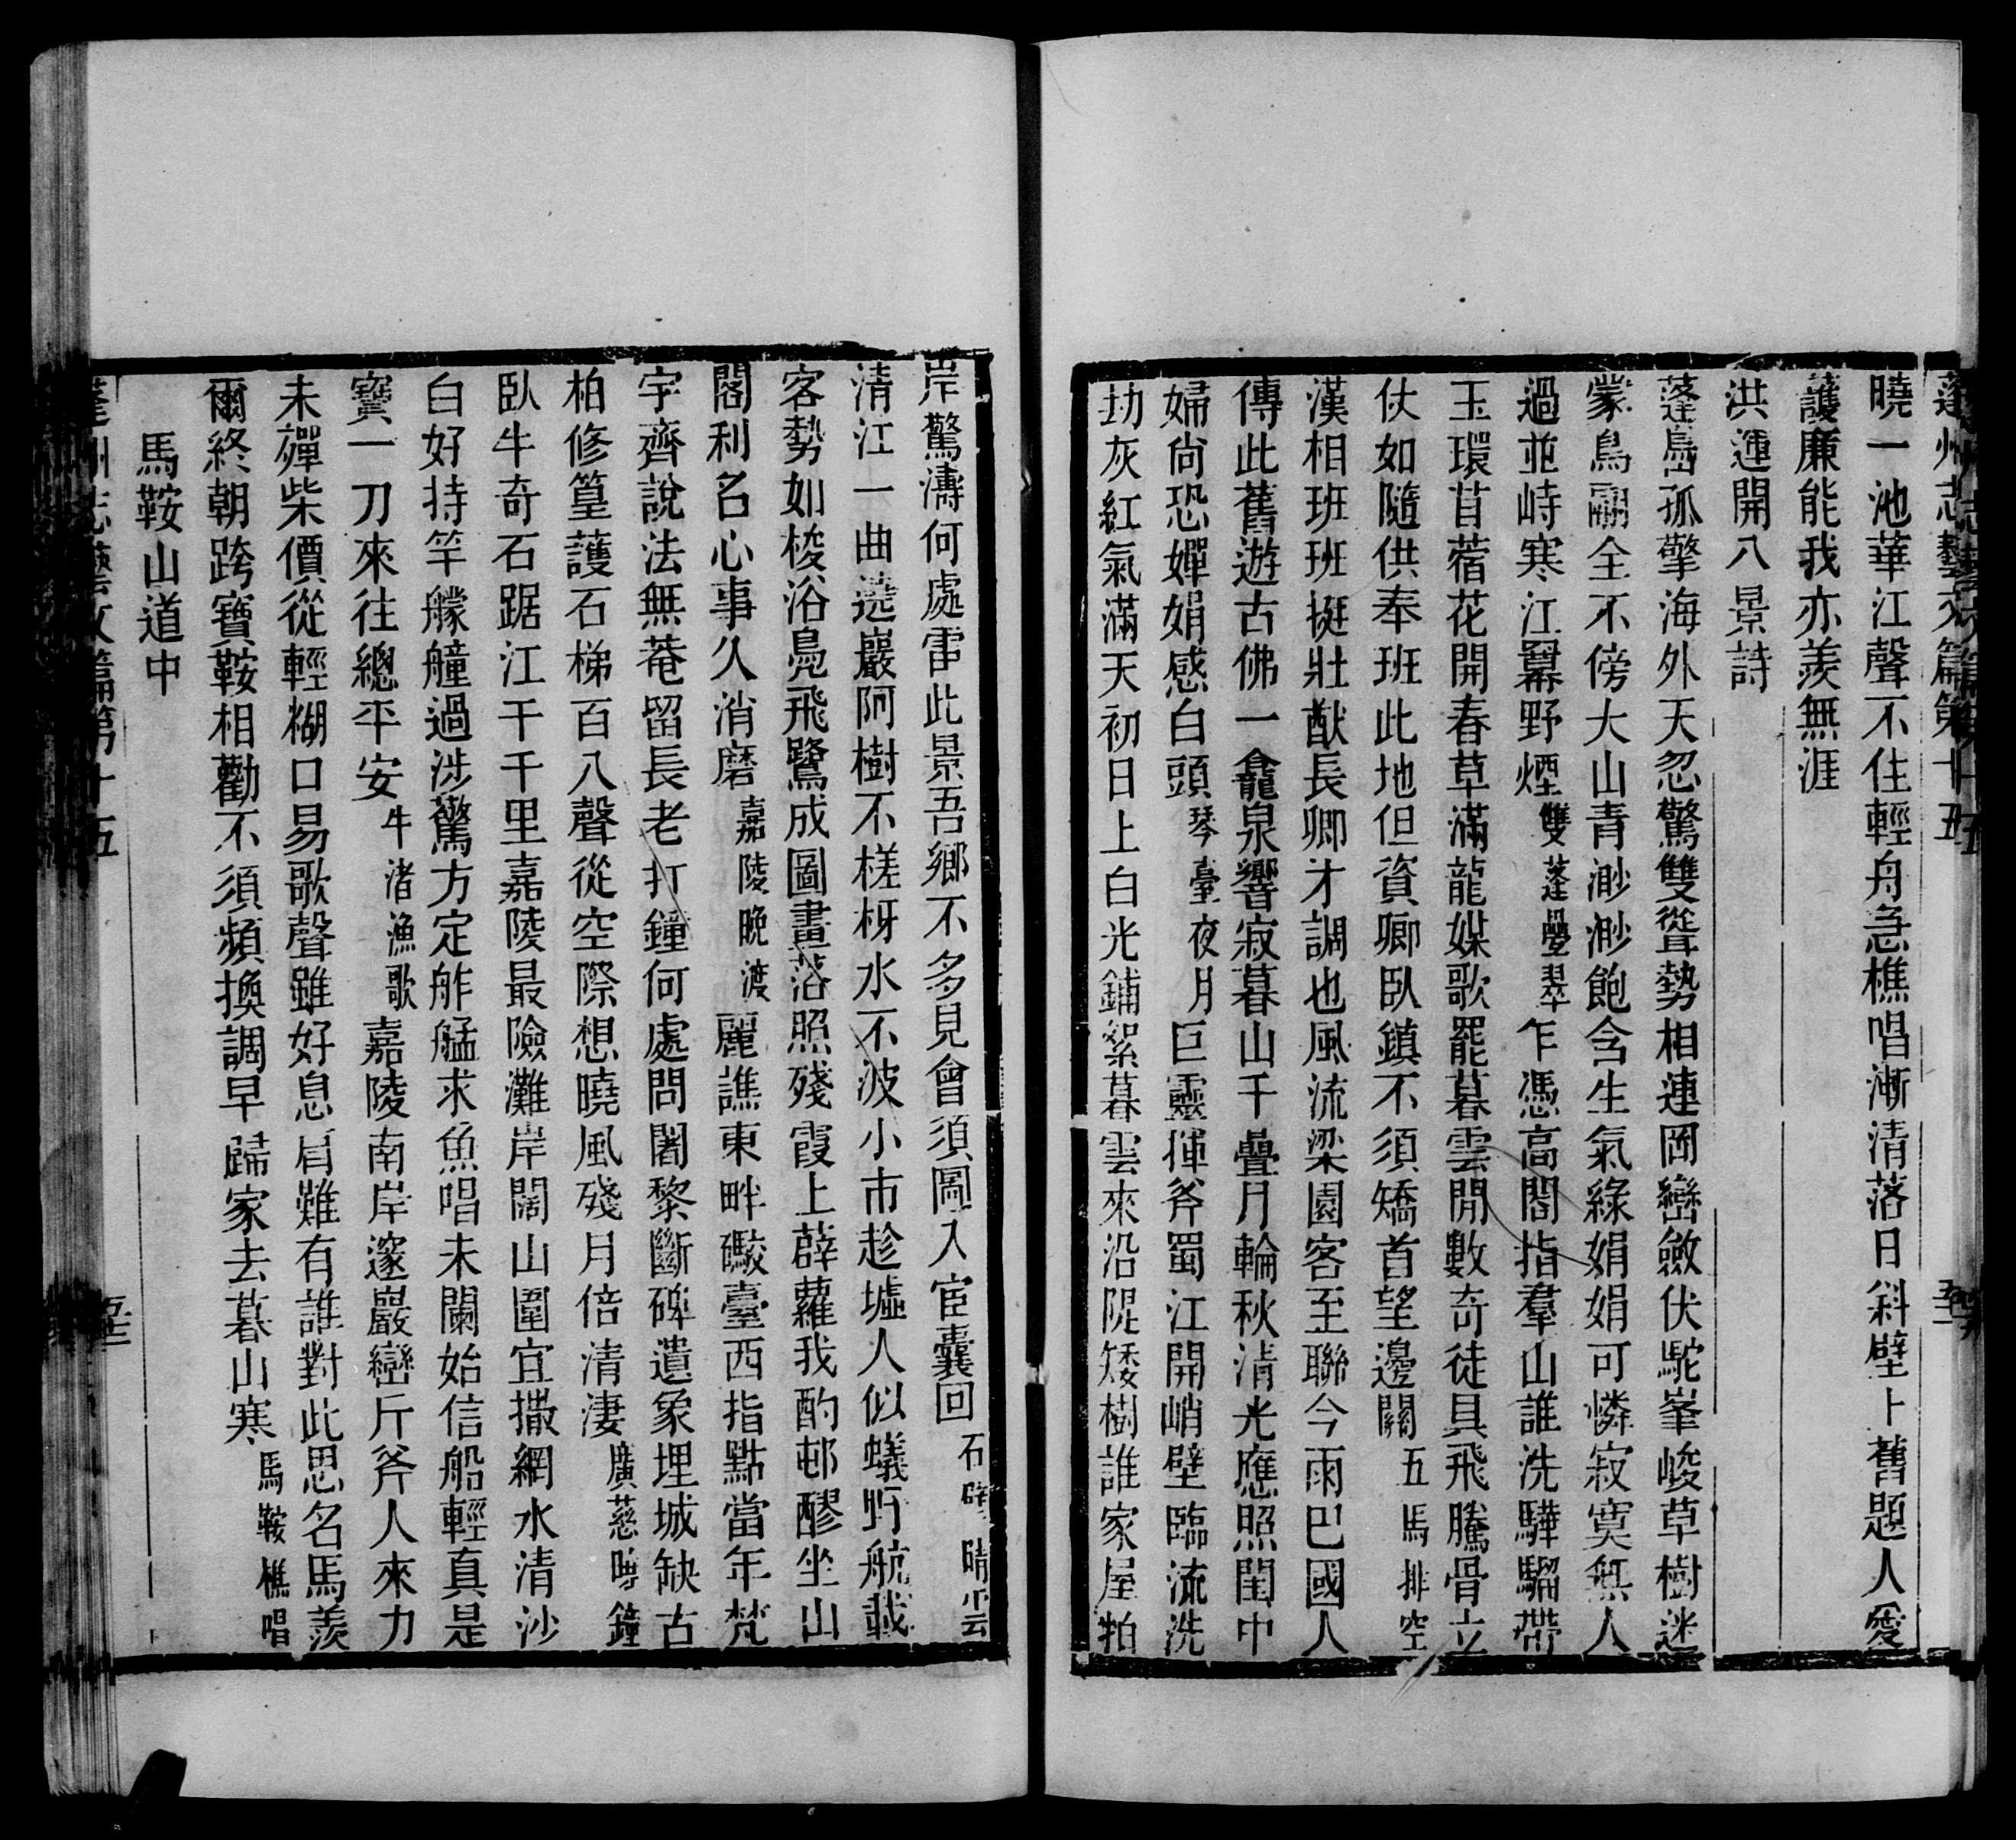 蓬州志藝文篇第十五
曉一池華江聲不住輕舟急樵唱漸清落日斜壁上舊題人愛
護廉能我亦羨無涯
洪運開八景詩
蓬島孤擎海外天忽驚雙聳勢相連岡巒斂伏駝峯峻草樹迷
蒙鳥翮全不傍大山青渺渺飽含生氣綠娟娟可憐寂寞無人
過並峙寒江羃野煙 雙蓬疊翠 乍憑高閣指羣山誰洗驊騮帶
玉環苜蓿花開春草滿龍媒歌罷暮雲閒數奇徒具飛騰骨立
仗如隨供奉班此地但資卿臥鎮不須矯首望邊關 五馬排空
漢相班班挺壯猷長卿才調也風流梁園客至聯今雨巴國人
傳此舊遊古佛一龕泉響寂暮山千疊月輪秋清光應照閨中
婦尙恐嬋娟感白頭 琴臺夜月 巨靈揮斧蜀江開峭壁臨流洗
劫灰紅氣滿天初日上白光鋪絮暮雲來沿隄矮樹誰家屋拍
岸驚濤何處雷此景吾鄉不多見會須圖入宦囊回 石壁晴雲
清江一曲遶巖阿樹不槎枒水不波小市趁墟人似蟻野航載
客勢如梭浴鳧飛鷺成圖畫落照殘霞上薜蘿我酌邨醪坐山
閣利名心事久消磨 嘉陵晚渡 麗譙東畔礮臺西指點當年梵
宇齊說法無菴留長老打鐘何處問闍黎斷碑遺象埋城缺古
柏修篁護石梯百八聲從空際想曉風殘月倍清淒 廣慈嘡鐘
臥牛奇石踞江干千里嘉陵最險灘岸闊山圍宜撒網水清沙
白好持竿艨艟過涉驚方定舴艋求魚唱未闌始信船輕真是
寶一刀來往總平安 牛渚漁歌 嘉陵南岸邃巖巒斤斧人來力
未殫柴價從輕糊口易歌聲雖好息肩難有誰對此思名馬羨
爾終朝跨寶鞍相勸不須頻換調早歸家去暮山寒 馬鞍樵唱
馬鞍山道中
蓬州志藝文篇第十五